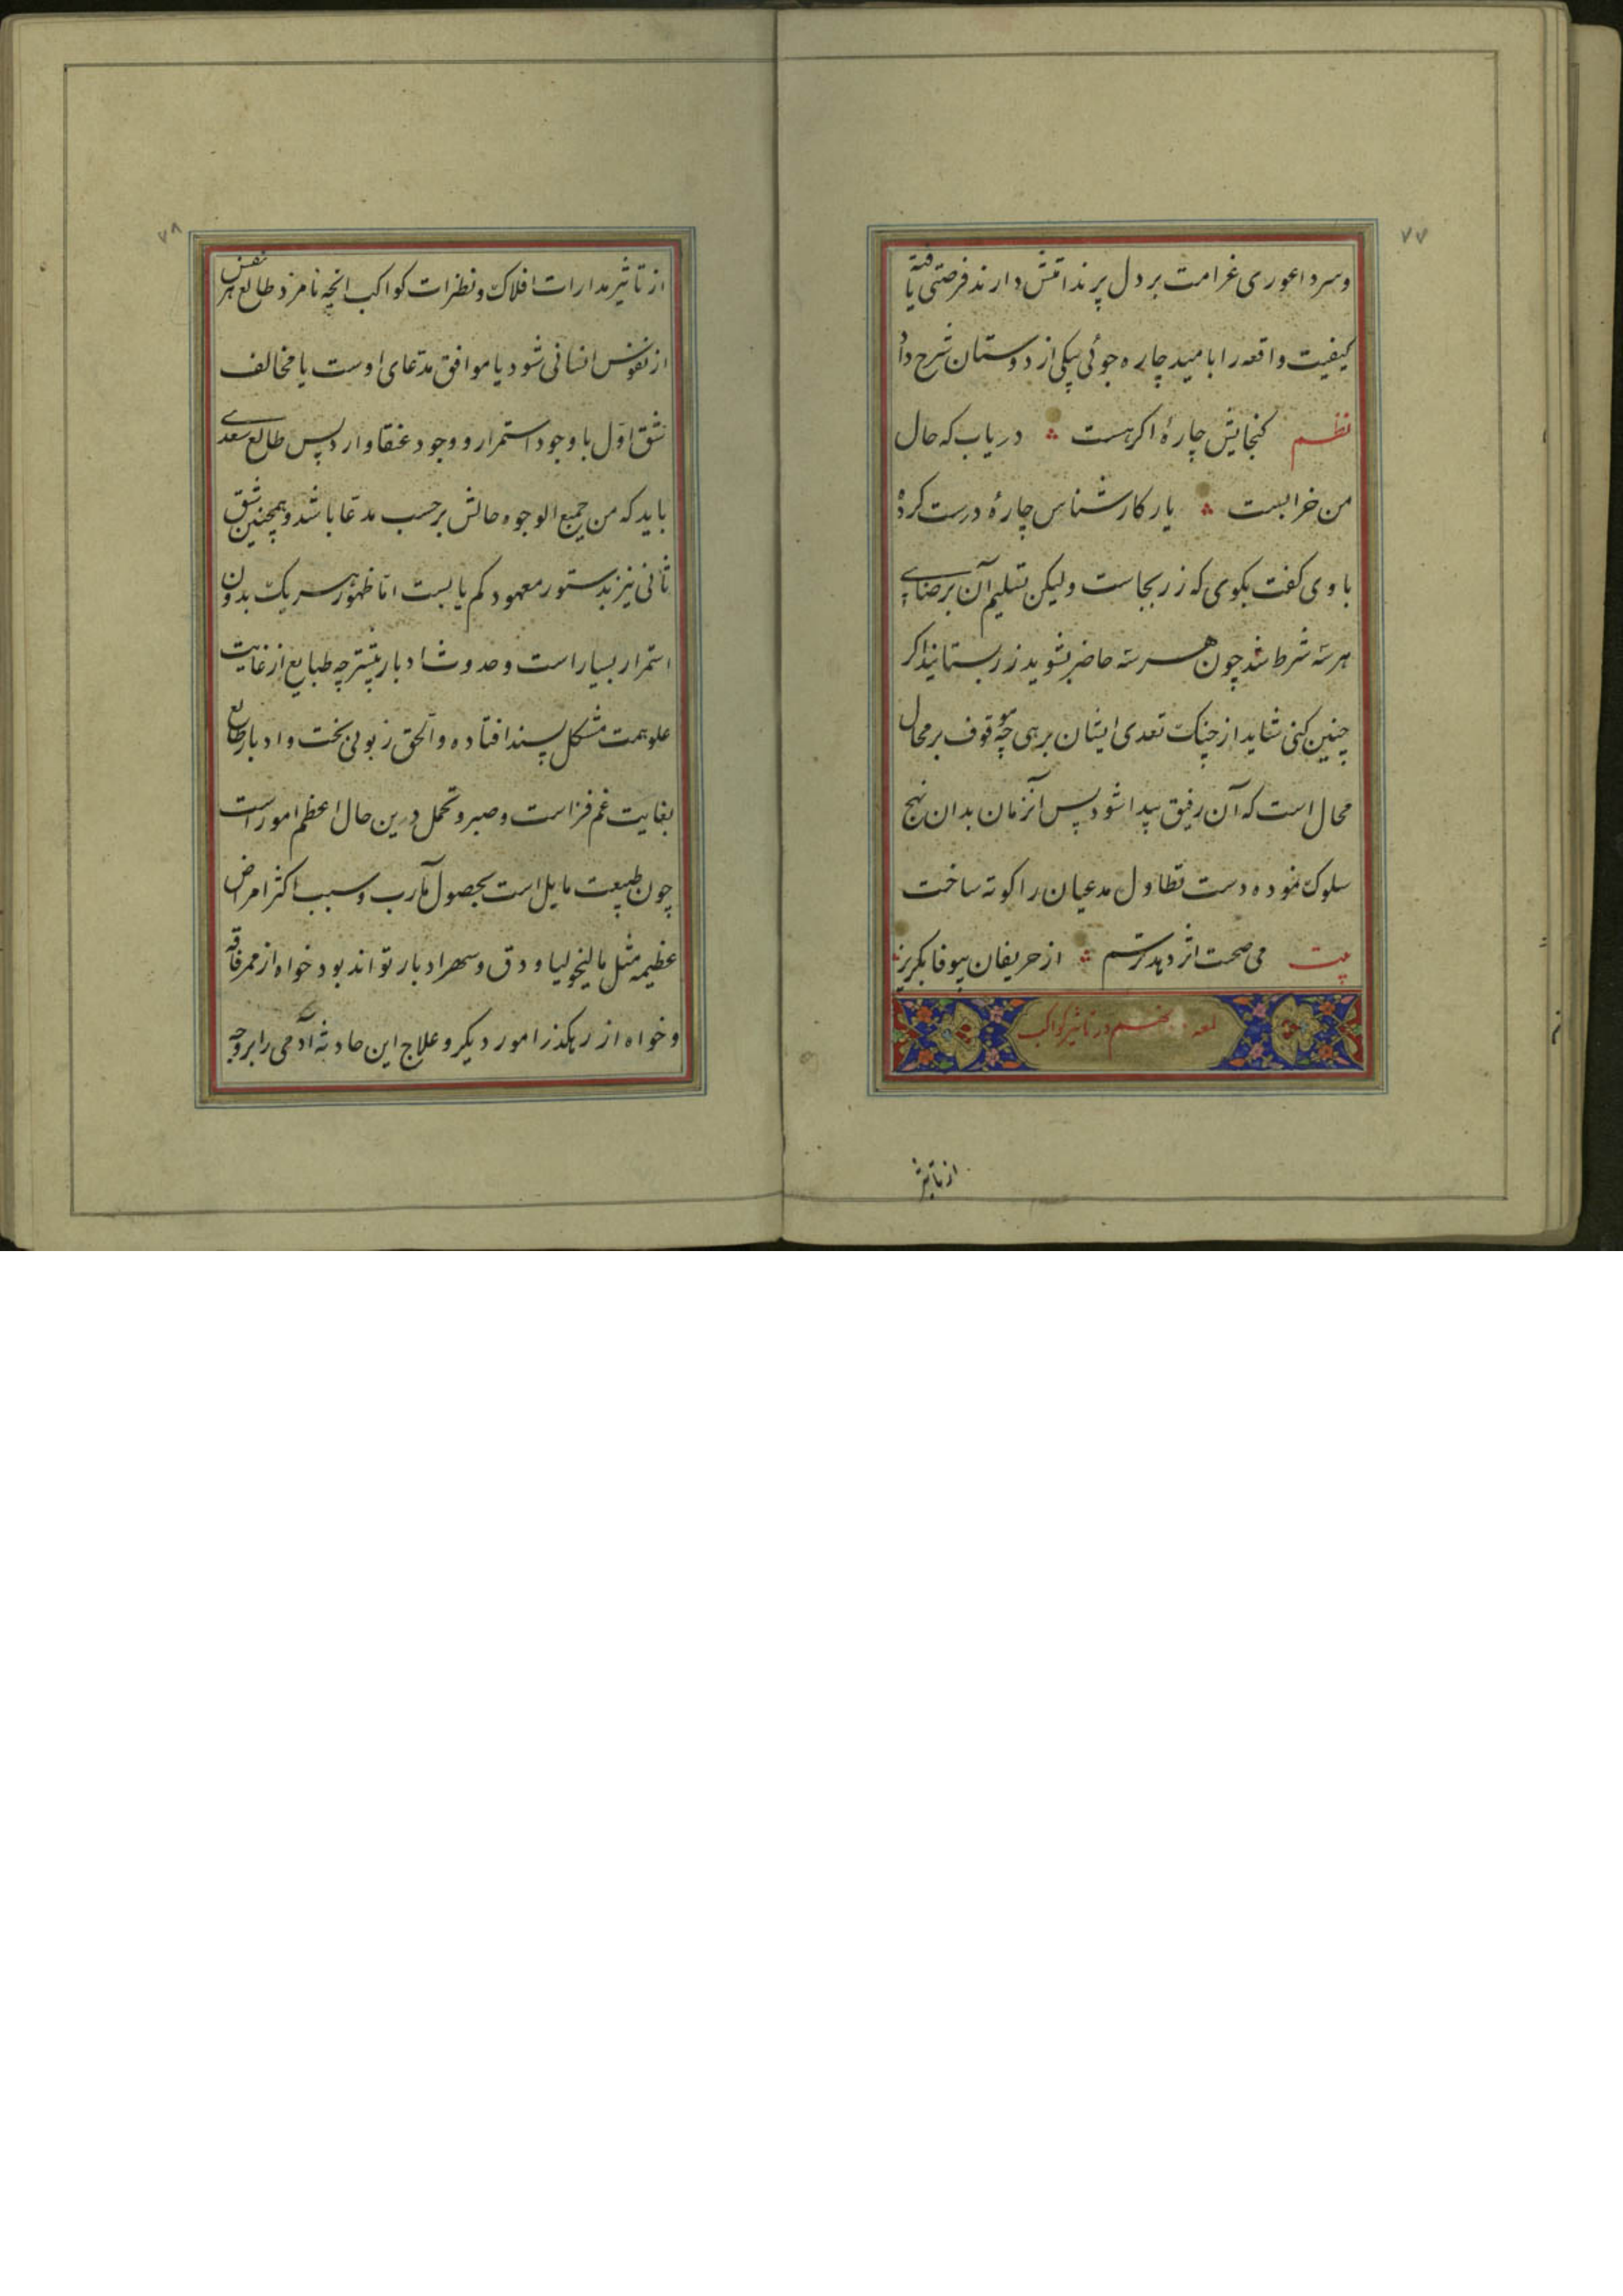 ۷۷
و سرد اعوری غرامت بر دل پر ندانتش دارند فرصتی یافته
کیفیت واقعه را بامید چاره جوئی بیکی از دوستان شرح داد
نظم کنجایش چارهٔ اکر هست در یاب که حال
من خرابست یار کارشناس چارهٔ درست کرده
با وی کفت بکوی که زر بجاست ولیکن تسلیم آن برضای
هر سه شرط شد چون هر سه حاضر شوید زر بستانید اکر
چنین کنی شاید از چنک تعدی ایشان برهی چه موقوف بر محال
محال است که آن رفیق پیدا شود پس آنزمان بدان نهج
سلوک نموده دست تطاول مدعیان را کوته ساخت
بیت می صحبت اثر دهد ترسم از حریفان بیوفا بکریز
لمعه نهم در تاثیر کواکب
از تاثیر
۷۸
از تاثیر مدارات افلاک و نظرات کواکب انچه نامزد طالع هر نفس
از نفوس انسانی شود یا موافق مدعای اوست یا مخالف
شق اول با وجود استمرار و وجود عنقا وارد پس طالع سعدی
باید که من جمیع الوجوه حالش بر حسب مدعا باشد و همچنین شق
ثانی نیز بدستور معهود کم یابست اما ظهور هر یک بدون
استمرار بسیار است و حدوث ادبار بیشتر چه طبایع از غایت
علو همت مشکل پسند افتاده و الحق زبونی بخت و ادبار طالع
بغایت غم فزاست و صبر و تحمل درین حال اعظم امور است
چون طبیعت مایل است بحصول مآرب و سبب اکثر امراض
عظیمه مثل مالیخولیا و دق و سهر ادبار تواند بود خواه از ممر فاقه
و خواه از رهکذر امور دیکر و علاج این حادثه آدمی را بر وجه